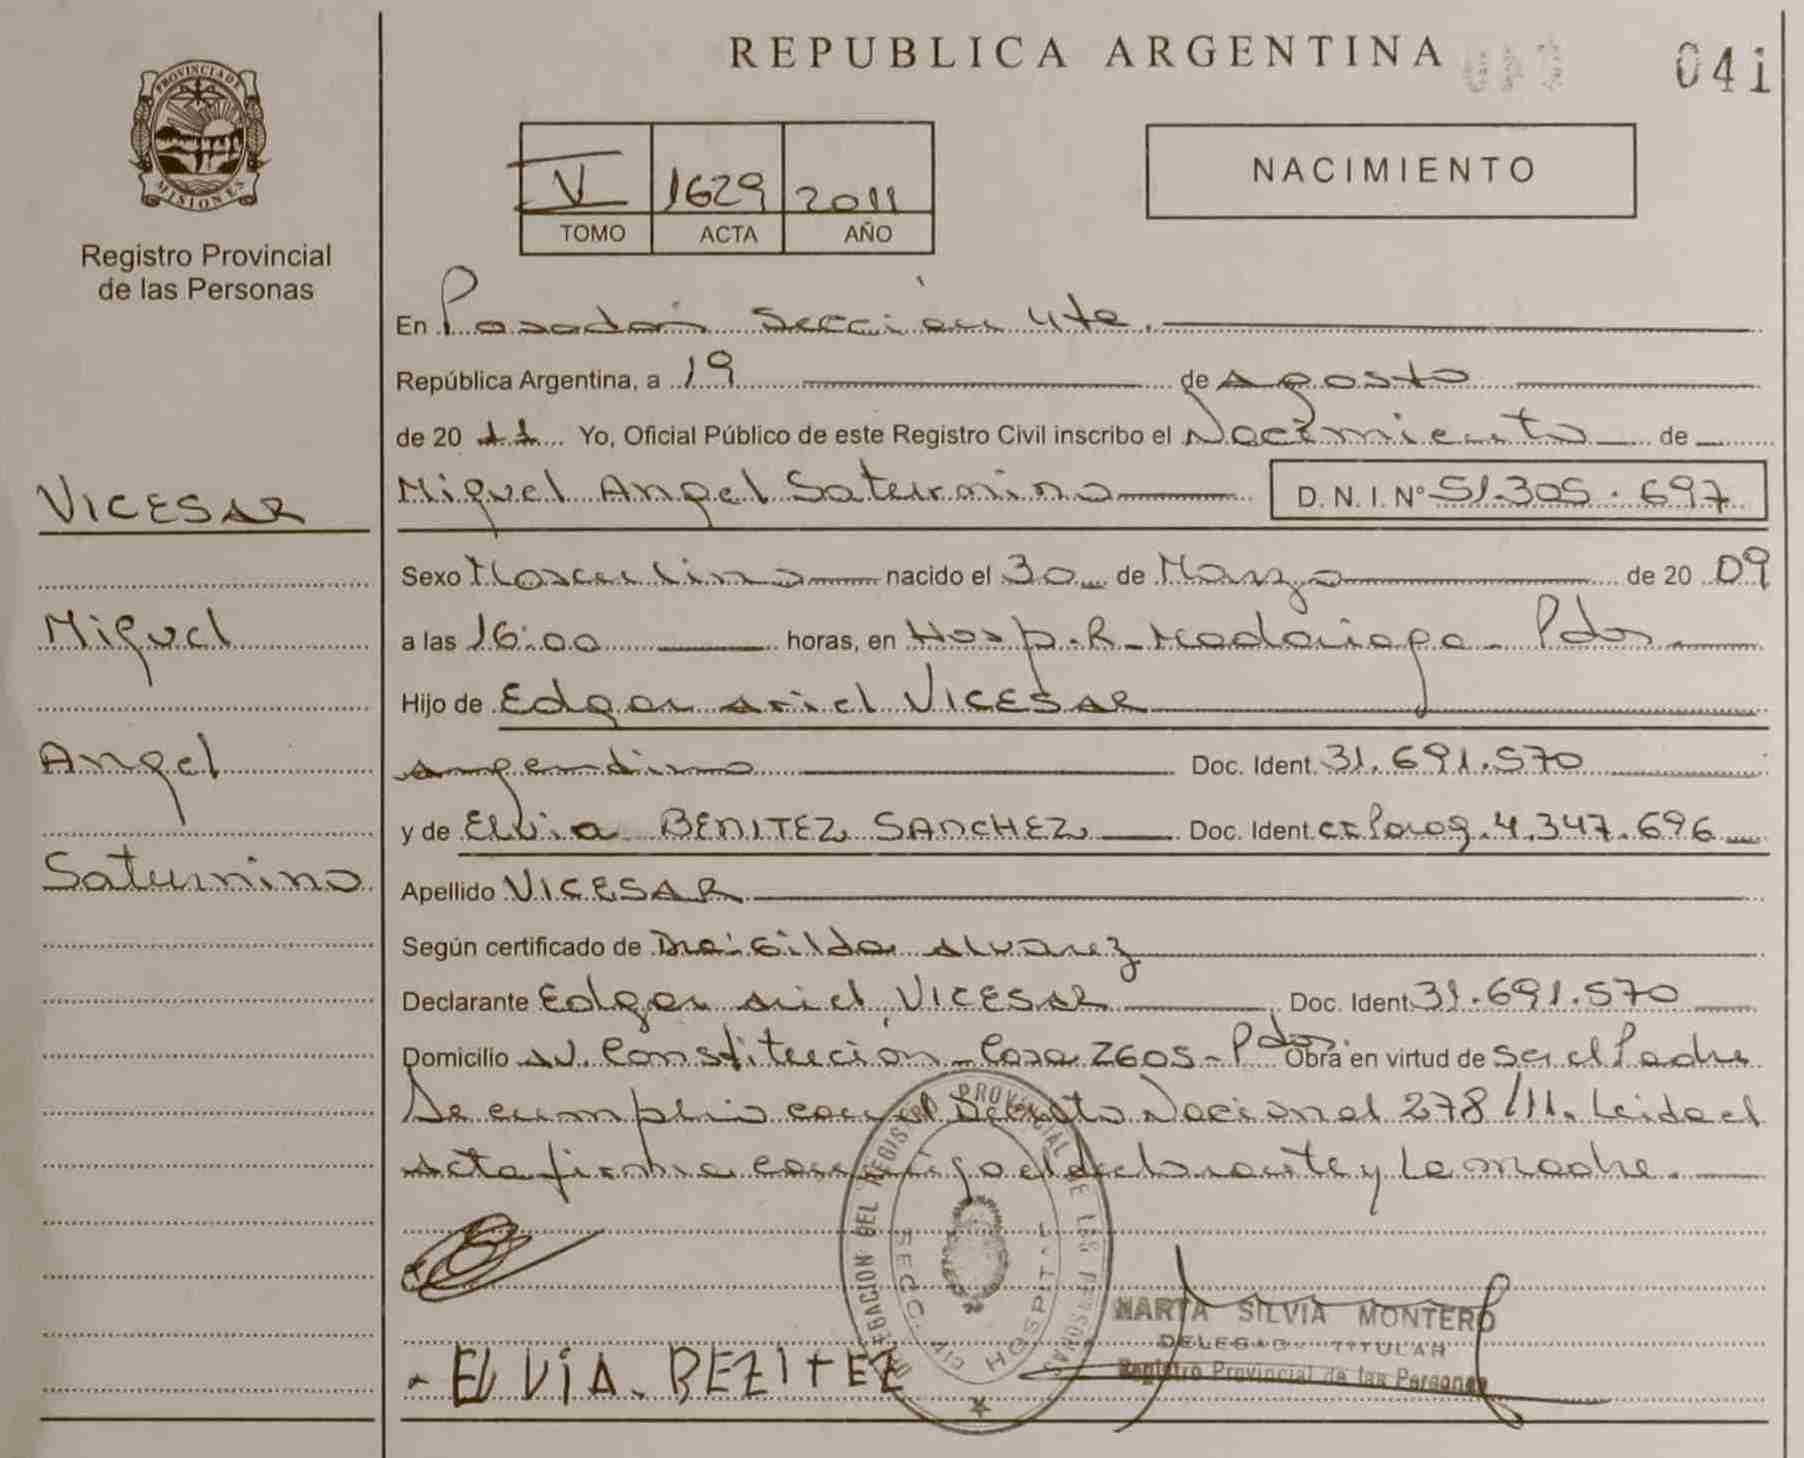 REPUBLICA ARGENTINA
041
PROVINCIA DE
MISIONES
Registro Provincial
de las Personas
V 1629 2011
TOMO ACTA AÑO
NACIMIENTO
En Posadas Sección 4ta.
República Argentina, a 19 de Agosto
de 2011 Yo, Oficial Público de este Registro Civil inscribo el Nacimiento de
Miguel Angel Saturnino D.N.I. Nº 51.305.697
VICESAR
Miguel
Angel
Saturnino
Sexo Masculino nacido el 30 de Marzo de 2009
a las 16:00 horas, en Hosp. R. Madariaga - Pdas
Hijo de Edgar Ariel VICESAR
Argentino Doc. Ident. 31.691.570
y de Elvia BENITEZ SANCHEZ Doc. Ident. CI Parag. 4.347.696
Apellido VICESAR
Según certificado de Dra. Gilda Alvarez
Declarante Edgar Ariel VICESAR Doc. Ident. 31.691.570
Domicilio Av. Constitución - Casa 2605 - Pdas Obra en virtud de Ser el Padre
Se cumplio con el Decreto Nacional 278/11. Leida el
Acta firma conmigo el declarante y La madre.
PROVINCIAL DE LAS PERSONAS
HOSPITAL
MARTA SILVIA MONTERO
DELEGADA TITULAR
Registro Provincial de las Personas
- ELVIA. BEZITEZ